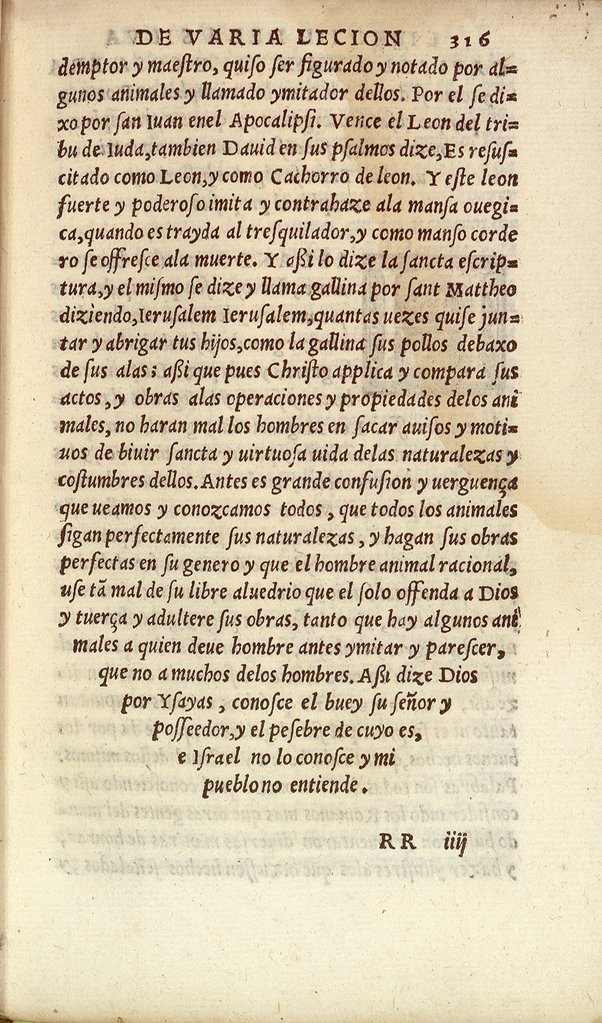 DE VARIA LECION 316
demptor y maeſtro, quiſo ſer figurado y notado por al=
gunos animales y llamado ymitador dellos. Por el ſe di=
xo por ſan Iuan enel Apocalipſi. Vence el Leon del tri=
bu de Iuda, tambien Dauid en sus pſalmos dize, Es reſuſ=
citado como Leon, y como Cachorro de leon. Y eſte leon
fuerte y poderoſo imita y contrahaze ala manſa ouegi=
ca, quando es trayda al treſquilador, y como manſo corde
ro ſe offreſce ala muerte. Y aßi lo dize la ſancta eſcrip=
tura, y el miſmo ſe dize y llama gallina por sant Mattheo
diziendo, Ieruſalem Ieruſalem, quantas uezes quiſe jun=
tar y abrigar tus hijos, como la gallina ſus pollos debaxo
de ſus alas; aßi que pues Chriſto applica y compara ſus
actos, y obras alas operaciones y propiedades delos ani
males, no haran mal los hombres en ſacar auiſos y moti=
uos de biuir ſancta y uirtuoſa uida delas naturalezas y
coſtumbres dellos. Antes es grande confuſion y uerguença
que ueamos y conozcamos todos, que todos los animales
ſigan perfectamente ſus naturalezas, y hagan ſus obras
perfectas en ſu genero y que el hombre animal racional,
uſe tã mal de ſu libre aluedrio que el ſolo offenda a Dios
y tuerça y adultere ſus obras, tanto que hay algunos ani
males a quien deue hombre antes ymitar y pareſcer,
que no a muchos delos hombres. Aßi dize Dios
por Yſayas, conoſce el buey ſu ſeñor y
poſſeedor, y el peſebre de cuyo es,
e Iſrael no lo conoſce y mi
pueblo no entiende.
RR iiij